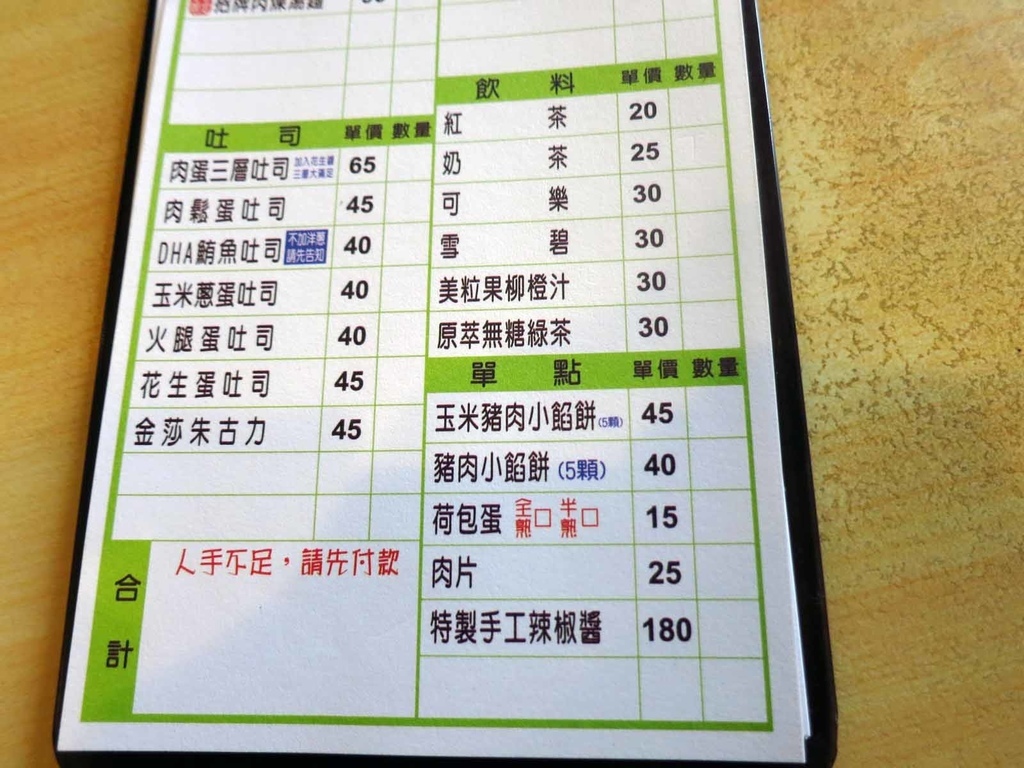 吐司 單價 數量
肉蛋三層吐司 加入花生醬 三層大滿足 65
肉鬆蛋吐司 45
DHA鮪魚吐司 不加洋蔥 請先告知 40
玉米蔥蛋吐司 40
火腿蛋吐司 40
花生蛋吐司 45
金莎朱古力 45
合計
人手不足，請先付款
飲料 單價 數量
紅茶 20
奶茶 25
可樂 30
雪碧 30
美粒果柳橙汁 30
原萃無糖綠茶 30
單點 單價 數量
玉米豬肉小餡餅(5顆) 45
豬肉小餡餅(5顆) 40
荷包蛋 全熟□ 半熟□ 15
肉片 25
特製手工辣椒醬 180